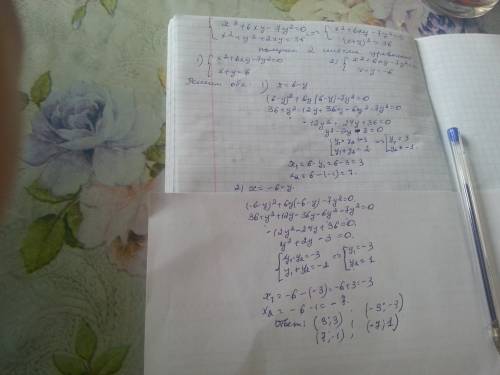 { x²+6xy-7y²=0 => { x²+6xy-7y²=0
{ x²+y²+2xy=36 { (x+y)²=36
2 системы уравнений
1) { x²+6xy-7y²=0 2) { x²+6xy-7y²=0
{ x+y=6 { x+y=-6
Решим оба. 1) x=6-y
(6-y)²+6y(6-y)-7y²=0
36+y²-12y+36y-6y²-7y²=0
-12y²+24y+36=0
y²-2y-3=0
{ y₁·y₂=-3 => [ y₁=3
{ y₁+y₂=2 [ y₂=-1
x₁=6-y₁=6-3=3
x₂=6-(-1)=7.
2) x=-6-y.
(-6-y)²+6y(-6-y)-7y²=0
36+y²+12y-36y-6y²-7y²=0
-12y²-24y+36=0.
y²+2y-3=0.
{ y₁·y₂=-3 => [ y₁=-3
{ y₁+y₂=-2 [ y₂=1
x₁=-6-(-3)=-6+3=-3
x₂=-6-1=-7.
Ответ: (3;3) ; (-3;-3)
(7;-1) ; (-7;1)